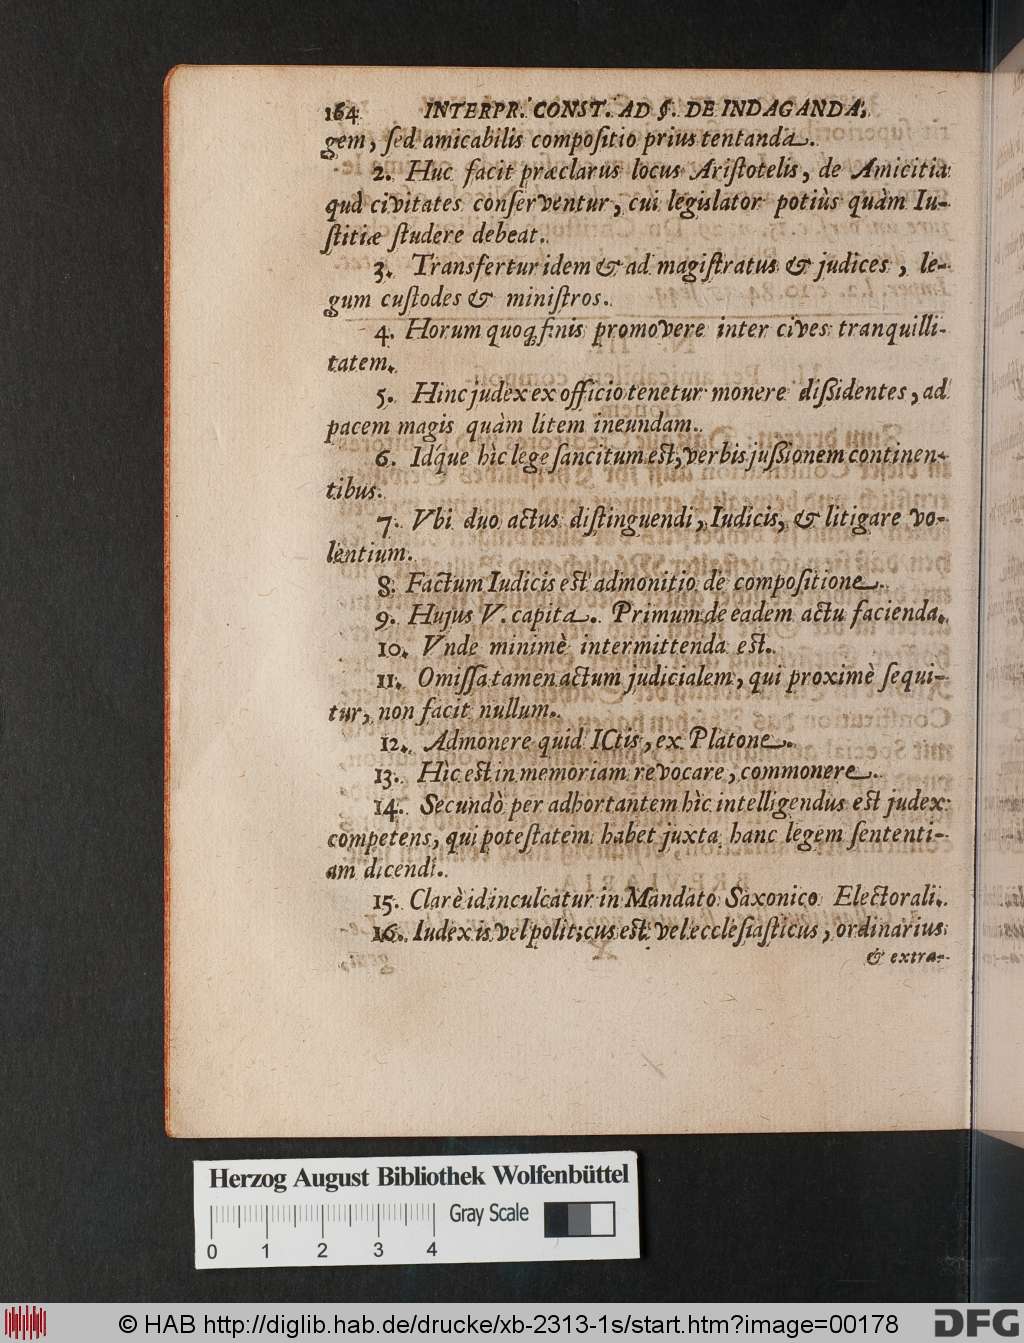 164 INTERPR. CONST. AD §. DE INDAGANDA,
gem, ſed amicabilis compoſitio prius tentanda.
2. Huc facit præclarus locus Ariſtotelis, de Amicitia
quâ civitates conſerventur, cui legislator potiùs quàm Iu-
ſtitiæ ſtudere debeat.
3. Transfertur idem & ad magiſtratus & judices, le-
gum cuſtodes & miniſtros.
4. Horum quoq; finis promovere inter cives tranquilli-
tatem.
5. Hinc judex ex officio tenetur monere diſsidentes, ad
pacem magis quàm litem ineundam.
6. Idq́ue hìc lege ſancitum eſt, verbis juſsionem continen-
tibus.
7. Vbi duo actus diſtinguendi, Iudicis, & litigare vo-
lentium.
8. Factum Iudicis eſt admonitio de compoſitione.
9. Hujus V. capita. Primum de eadem actu facienda.
10. Vnde minimè intermittenda eſt.
11. Omiſſa tamen actum judicialem, qui proximè ſequi-
tur, non facit nullum.
12. Admonere quid ICtis, ex Platone.
13. Hìc eſt in memoriam revocare, commonere.
14. Secundò per adhortantem hìc intelligendus eſt judex
competens, qui poteſtatem habet juxta hanc legem ſententi-
am dicendi.
15. Clarè id inculcatur in Mandato Saxonico Electorali.
16. Iudex is vel politicus eſt vel eccleſiaſticus, ordinarius
& extra-
Herzog August Bibliothek Wolfenbüttel
Gray Scale
0 1 2 3 4
© HAB http://diglib.hab.de/drucke/xb-2313-1s/start.htm?image=00178
DFG